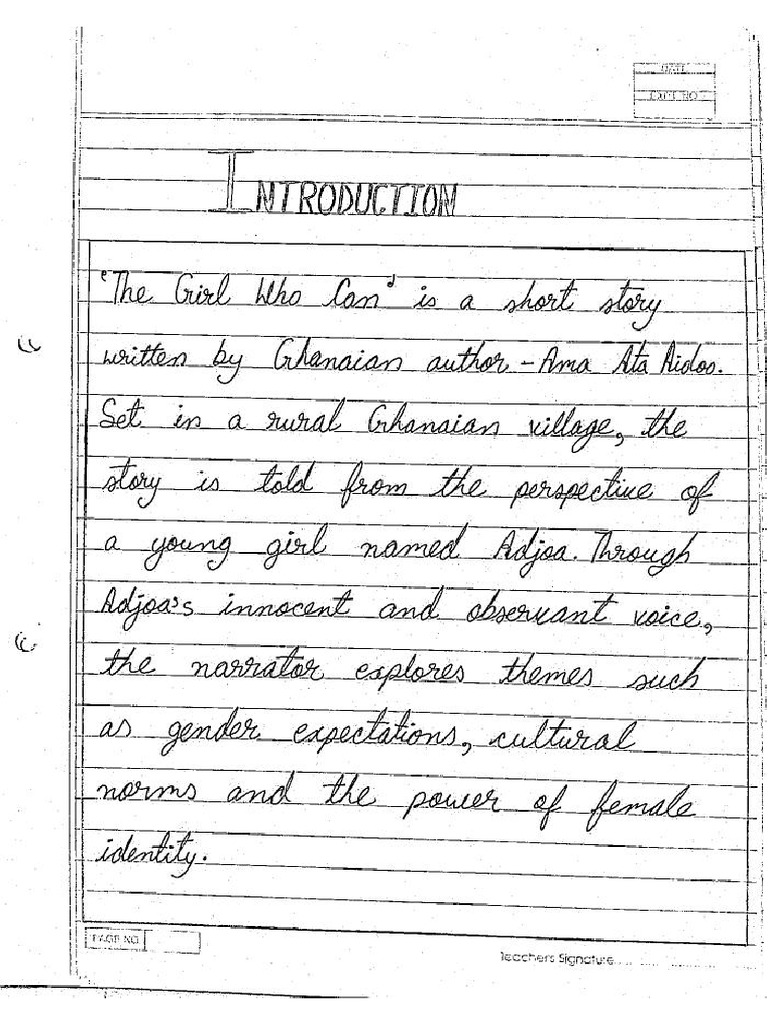 DATE
PAGE NO.
INTRODUCTION
'The Girl Who Can' is a short story
written by Ghanaian author - Ama Ata Aidos.
Set in a rural Ghanaian village, the
story is told from the perspective of
a young girl named Adjoa. Through
Adjoa's innocent and observant voice,
the narrator explores themes such
as gender expectations, cultural
norms and the power of female
identity.
PAGE NO
Teachers Signature